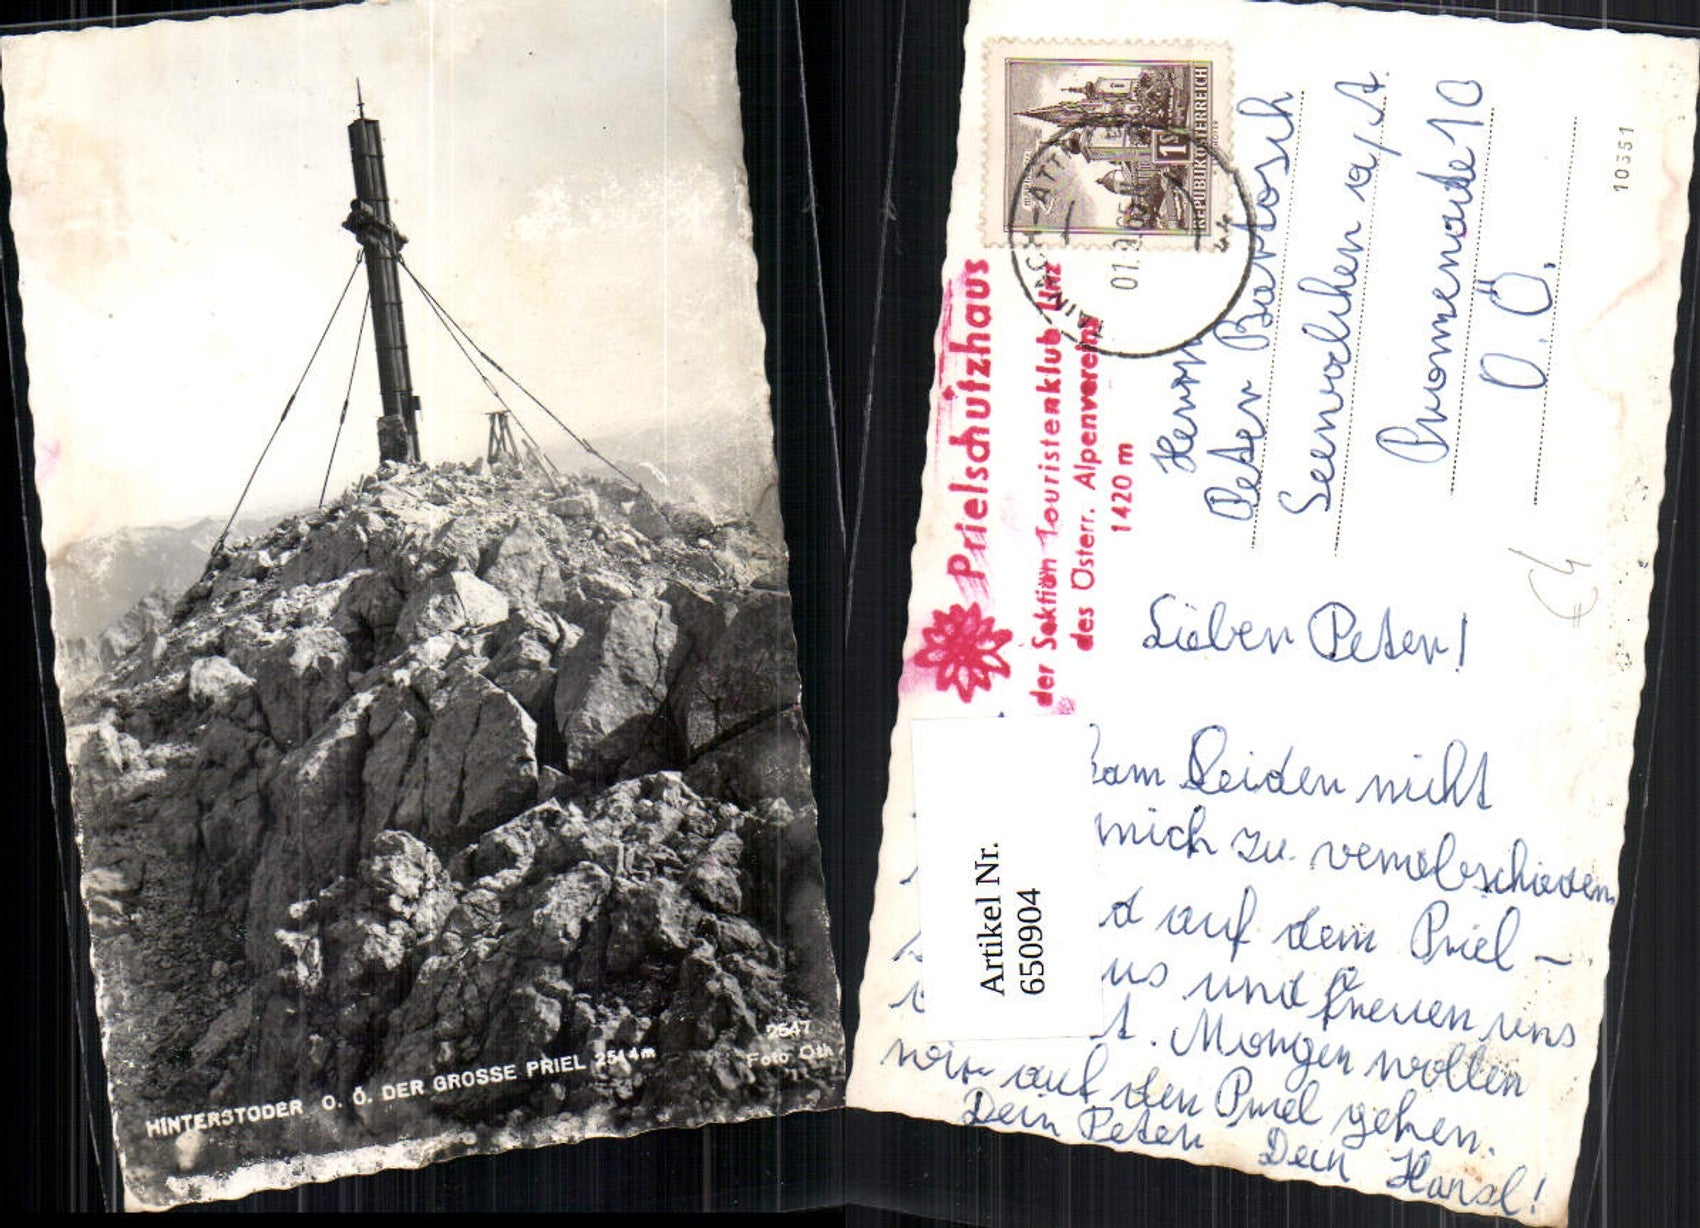 HINTERSTODER O. Ö. DER GROSSE PRIEL 2514m
2647
Foto Oth
REPUBLIK ÖSTERREICH
Prielschutzhaus
der Sektion Touristenklub Linz
des Österr. Alpenvereins
1420 m
Herrn
Peter Bartosch
Seewalchen a/A
Promenade 10
O. Ö.
10351
€4
Lieber Peter!
kam Leider nicht
mich zu verabschieden
d auf dem Priel -
us und freuen uns
t. Morgen wollen
wir auf den Priel gehen.
Dein Peter Dein Hansl!
Artikel Nr.
650904